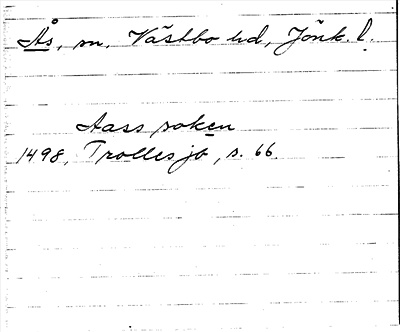 Ås, sn, Västbo hd, Jönk. l.
Aass soken
1498, Trollesjö, s. 66.